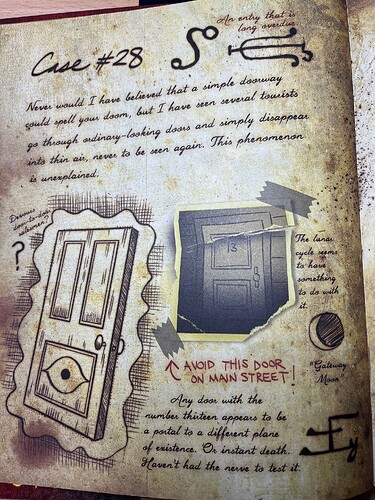 An entry that is
long overdue.
Case #28
Never would I have believed that a simple doorway
could spell your doom, but I have seen several tourists
go through ordinary-looking doors and simply disappear
into thin air, never to be seen again. This phenomenon
is unexplained.
Demonic
door-to-door
salesmen?
?
13
The lunar
cycle seems
to have
something
to do with
it.
"Gateway
Moon"
AVOID THIS DOOR
ON MAIN STREET!
Any door with the
number thirteen appears to be
a portal to a different plane
of existence. Or instant death.
Haven't had the nerve to test it.